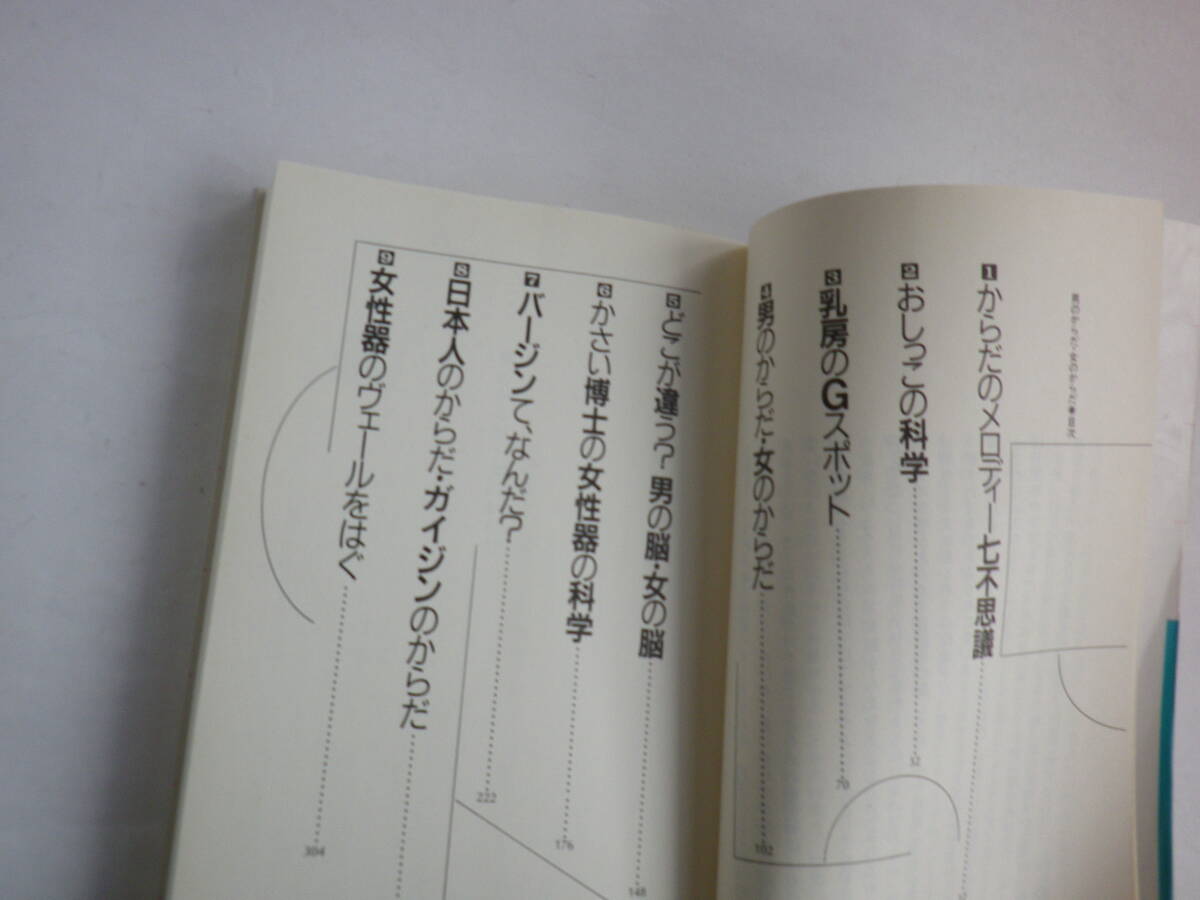 男のからだ・女のからだ◆目次
1 からだのメロディー七不思議
2 おしっこの科学 32
3 乳房のGスポット 70
4 男のからだ・女のからだ 102
5 どこが違う? 男の脳・女の脳 148
6 かさい博士の女性器の科学 176
7 バージンて、なんだ? 222
8 日本人のからだ・ガイジンのからだ
9 女性器のヴェールをはぐ 304